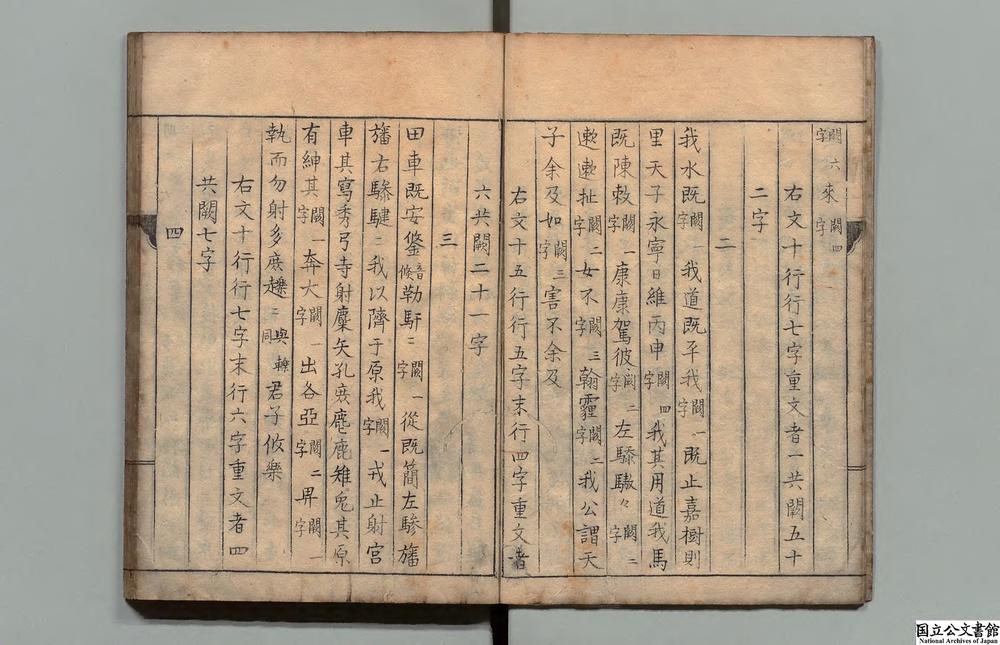 闕六字來闕四字
右文十行行七字重文者一共闕五十
二字
二
我水既闕一字我道既平我闕一字既止嘉樹則
里天子永寧日維丙申闕四字我其用道我馬
既陳敕闕一字康康駕彼闕二字左驂驐々闕二字
遬遬扯闕二字女不闕三字翰霾闕二字我公謂天
子余及如闕三字害不余及
右文十五行行五字末行四字重文者
六共闕二十一字
三
田車既安鋚音倏勒馯二闕一字從既簡左驂旛
旛右驂騝二我以隮于原我闕一字戎止射宮
車其寫秀弓寺射麋矢孔庶麀鹿雉兔其原
有紳其闕一字奔大闕一字出各亞闕二字畀闕一字
執而勿射多庶趮二與轢同君子攸樂
右文十行行七字末行六字重文者四
共闕七字
四
国立公文書館
National Archives of Japan